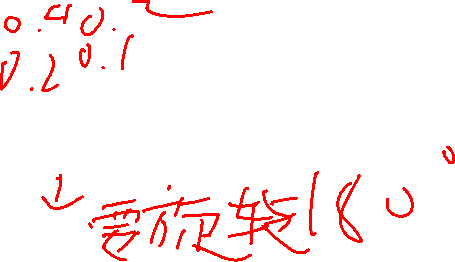 0.4 0.
0.2 0.1
↓需旋转180°